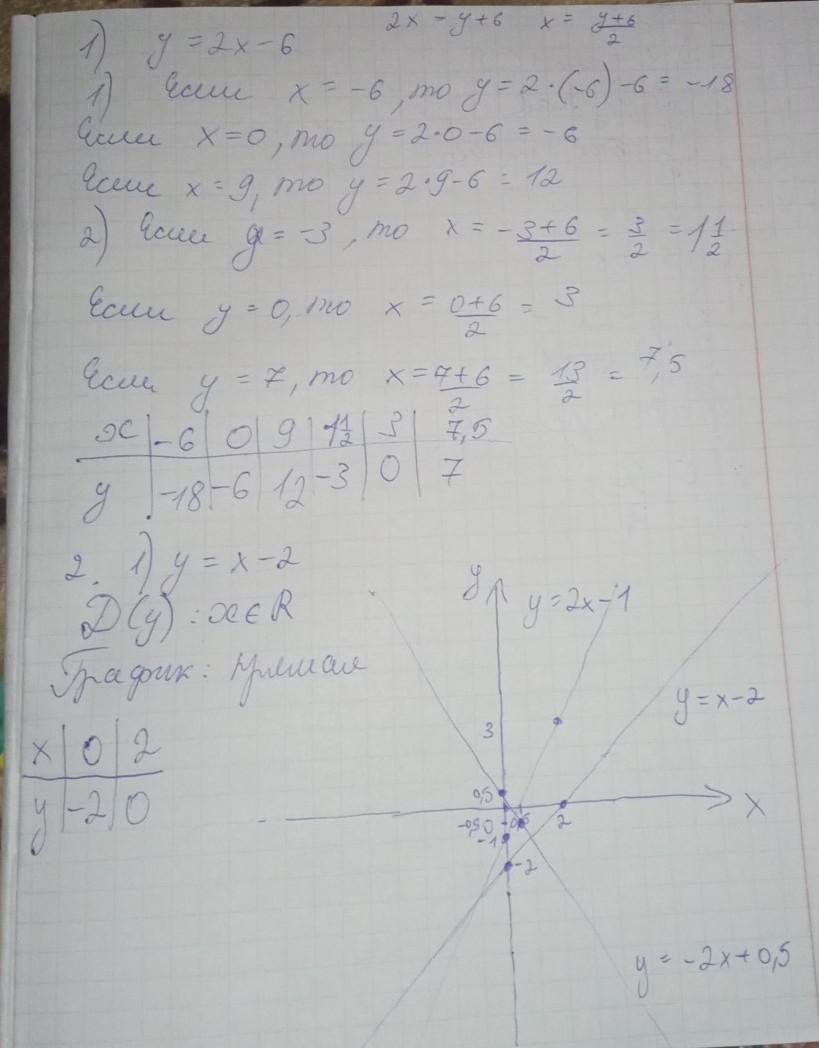 1) y = 2x - 6   2x = y + 6   x = (y+6)/2
1) Если x = -6, то y = 2·(-6) - 6 = -18
Если x = 0, то y = 2·0 - 6 = -6
Если x = 9, то y = 2·9 - 6 = 12
2) Если y = -3, то x = (-3+6)/2 = 3/2 = 1 1/2
Если y = 0, то x = (0+6)/2 = 3
Если y = 7, то x = (7+6)/2 = 13/2 = 7,5
x | -6 | 0 | 9 | 1 1/2 | 3 | 7,5
y | -18 | -6 | 12 | -3 | 0 | 7
2. 1) y = x - 2
D(y) : x ∈ R
График: прямая
x | 0 | 2
y | -2 | 0
y
y = 2x - 1
y = x - 2
3
0,5
-0,5 0 0,5 2 x
-1
-2
y = -2x + 0,5